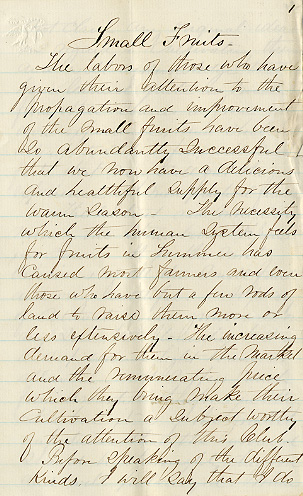 1
Small Fruits -
The labors of those who have
given their attention to the
propagation and improvement
of the small fruits have been
so abundantly successful
that we now have a delicious
and healthful supply for the
warm season - The necessity
which the human system feels
for fruits in Summer has
caused most farmers and even
those who have but a few rods of
land to raise them more or
less extensively - The increasing
demand for them in the market
and the remunerating price
which they bring make their
cultivation a subject worthy
of the attention of this Club.
Before speaking of the different
kinds, I will say that I do